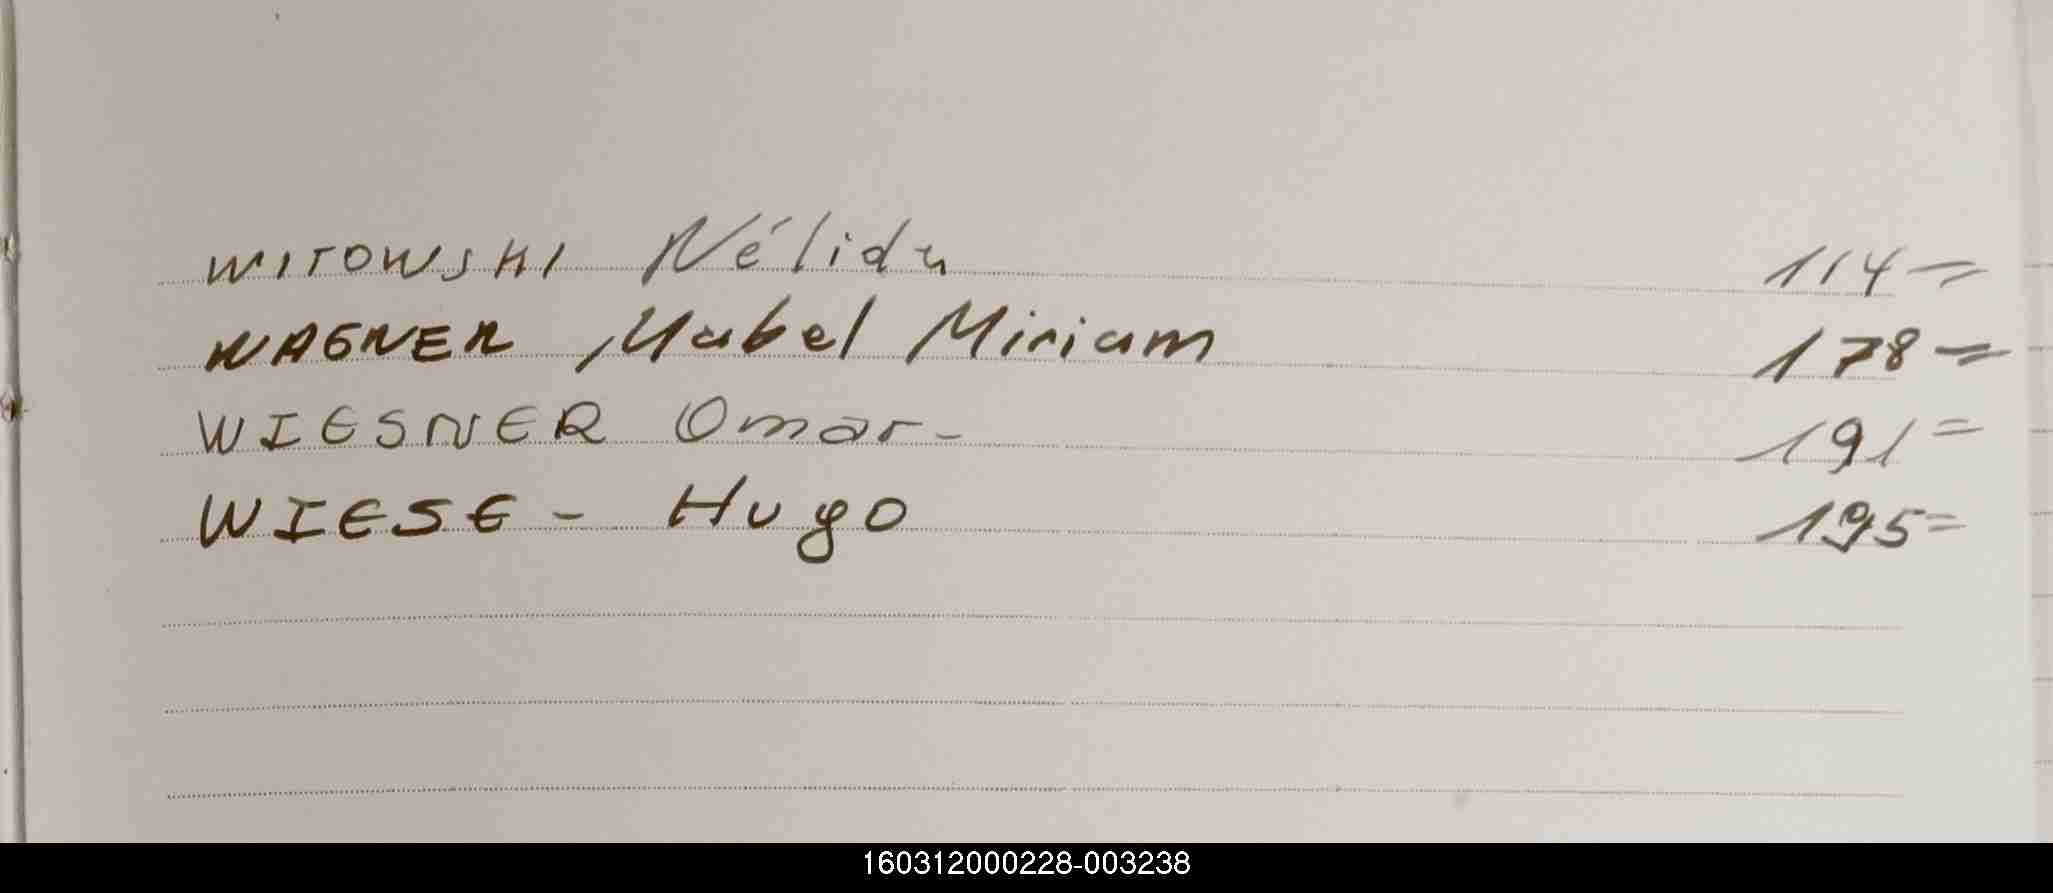 WITOWSKI Nélida 114=
WAGNER, Mabel Miriam 178=
WIESNER Omar- 191=
WIESE - Hugo 195=
160312000228-003238